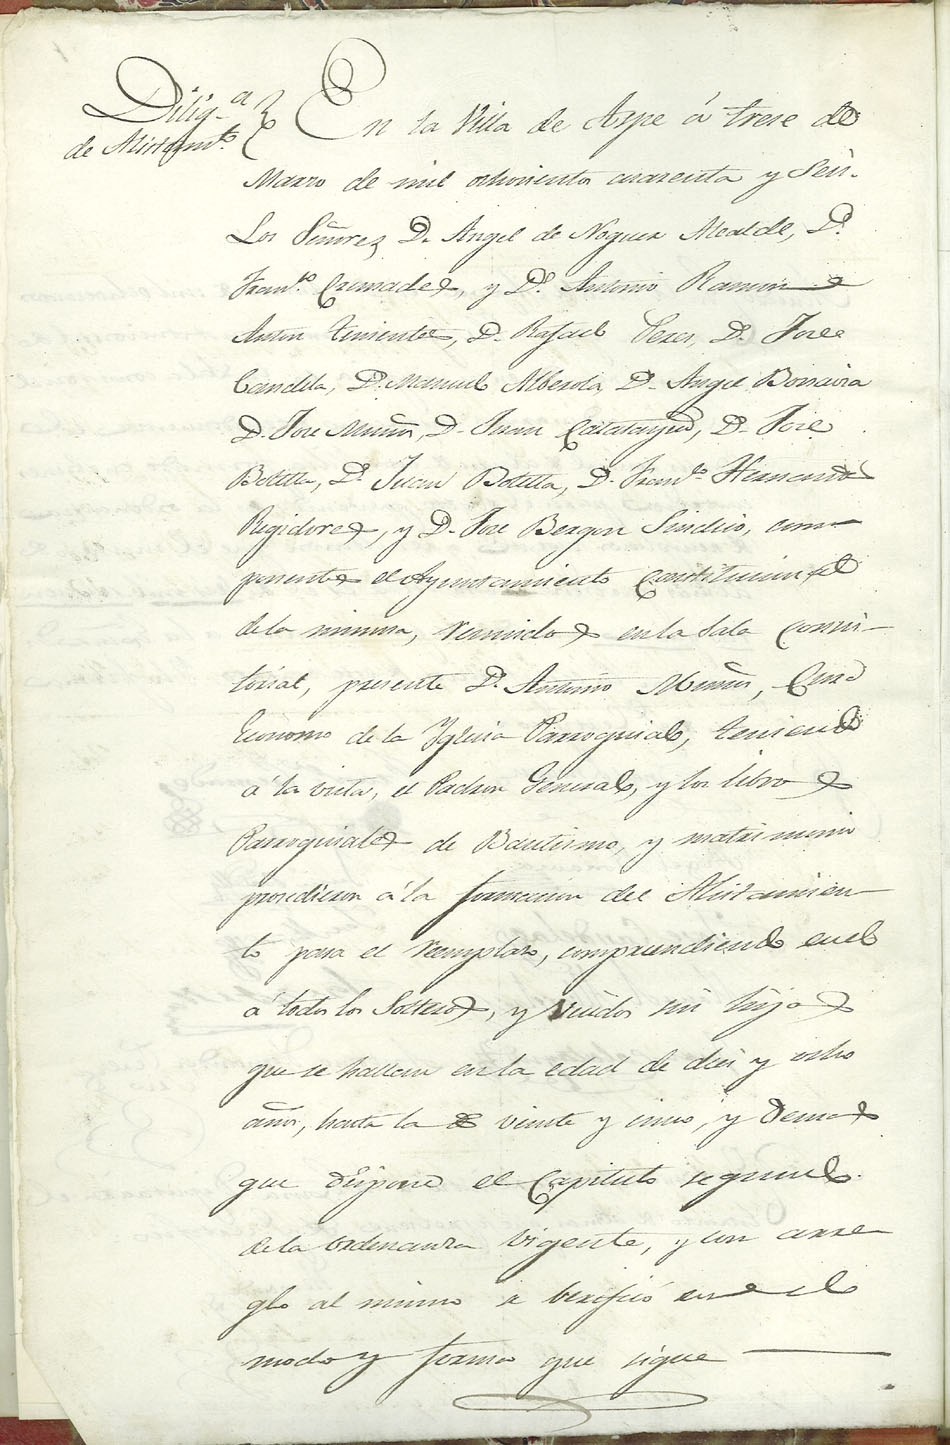 Dilig.ª
de Alistam.to
En la Villa de Aspe á trese de
Marzo de mil ochocientos cuarenta y Seis.
Los Señores D. Angel de Noguera Alcalde, D.
Fran.co Cremades, y D. Antonio Ramon de
Anton Tenientes, D. Rafael Perez, D. Jose
Candela, D. Manuel Alberola, D. Angel Bonavia
D. Jose Muñoz, D. Juan Calatayud, D. Jose
Botella, D. Juan Botella, D. Fran.co Hernandes
Regidores, y D. Jose Bergon Sindico, com-
ponentes el Ayuntamiento Constitucional
de la misma, reunidos en la Sala Consis-
torial, presente D. Antonio Muñoz, Cura
Economo de la Yglesia Parroquial, teniendo
á la vista, el Padron General, y los libros
Parroquiales de Bautismo, y matrimonio
prosedieron á la formacion del Alistamien-
to para el reemplazo, comprendiendo en el
á todos los Solteros, y viudos sin hijos
que se hallan en la edad de dies y ocho
años, hasta la de veinte y cinco, y demas
que dispone el Capitulo segundo
de la ordenanza vigente, y con arre-
glo al mismo se berificó en el
modo y forma que sigue